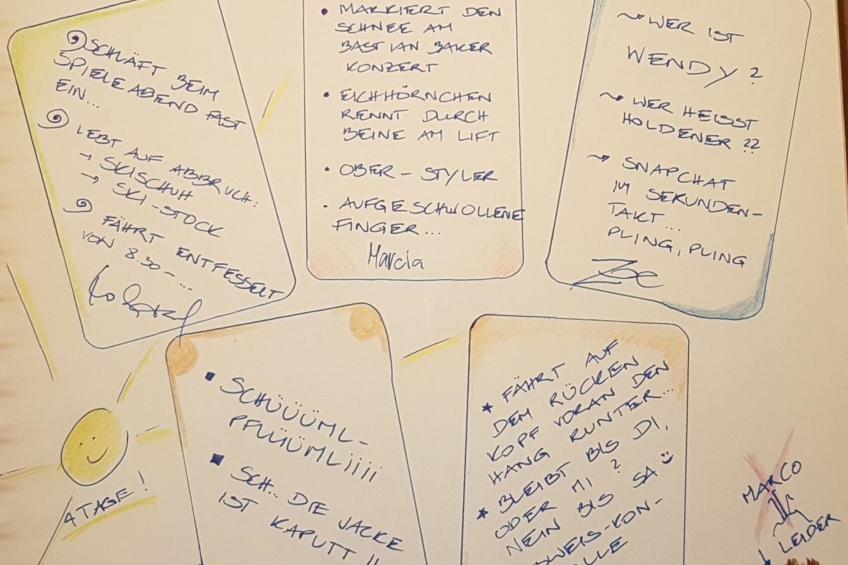 SCHLÄFT BEIM
SPIELEABEND FAST
EIN...
LEBT AUF ABBRUCH:
→ SKISCHUH
→ SKI-STOCK
FÄHRT ENTFESSELT
VON 8.30 - ...
• MARKIERT DEN
SCHNEE AM
BASTIAN BAKER
KONZERT
• EICHHÖRNCHEN
RENNT DURCH
BEINE AM LIFT
• OBER-STYLER
• AUFGESCHWOLLENE
FINGER...
Marcia
~ WER IST
WENDY?
~ WER HEISST
HOLDENER??
~ SNAPCHAT
IM SEKUNDEN-
TAKT...
PLING, PLING
Zoe
4 TAGE!
▪ SCHÜÜÜML-
PFLÜÜMLiiii
▪ SCH... DIE JACKE
IST KAPUTT!!
* FÄHRT AUF
DEM RÜCKEN
KOPF VORAN DEN
HANG RUNTER...
* BLEIBT BIS DI,
ODER MI?
NEIN BIS SA ☺
WEIS-KON-
LLE
MARCO
LEIDER